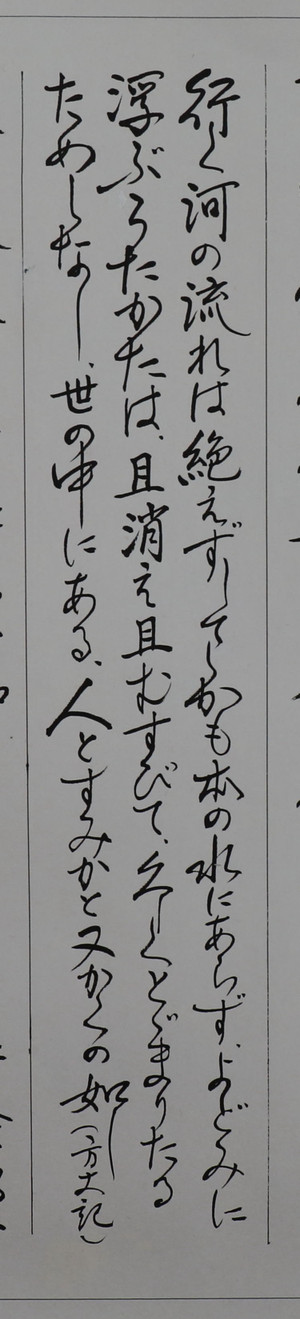 行く河の流れは絶えずしてしかも本の水にあらず、よどみに
浮ぶうたかたは、且消え且むすびて、久しくとゞまりたる
ためしなし、世の中にある、人とすみかと又かくの如し（方丈記）